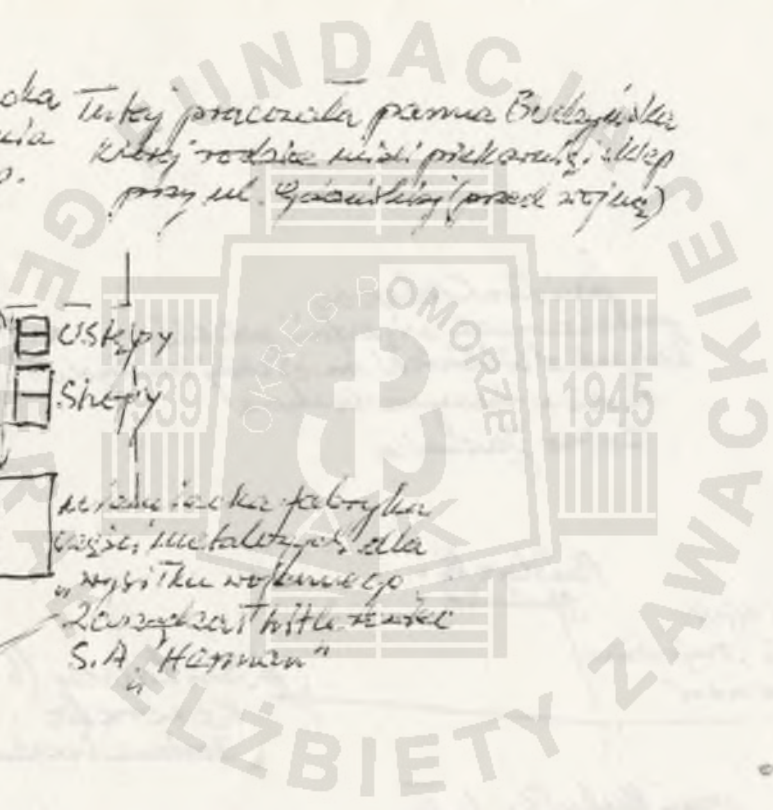 Tutaj pracowała panna Budzyńska
której rodzice mieli piekarnię i sklep
przy ul. Gdańskiej (przed wojną)
Ustępy
niemiecka fabryka
części metalowych dla
„wysiłku wojennego
Zarządzał hitlerowiec
S.A. „Harman"
FUNDACJA
GENERAŁ
ELŻBIETY ZAWACKIEJ
OKRĘG POMORZE
AK
1939
1945